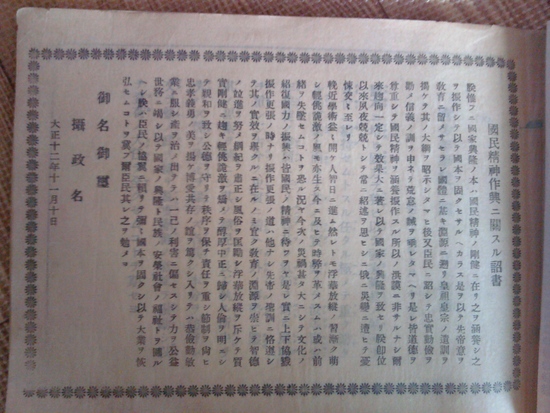 國民精神作興ニ關スル詔書
朕惟フニ國家興隆ノ本ハ國民精神ノ剛健ニ在リ之ヲ涵養シ之
ヲ振作シテ以テ國本ヲ固クセサルヘカラス是ヲ以テ先帝意ヲ
教育ニ留メサセラレ國體ニ基キ淵源ニ遡リ皇祖皇宗ノ遺訓ヲ
掲ケテ其ノ大綱ヲ昭示シタマヒ後又臣民ニ詔シテ忠實勤儉ヲ
勸メ信義ノ訓ヲ申ネテ荒怠ノ誡ヲ垂レタマヘリ是レ皆道德ヲ
尊重シテ國民精神ヲ涵養振作スル所以ノ洪謨ニ非サルナシ爾
來趨向一定シテ效果大ニ著レ以テ國家ノ興隆ヲ致セリ朕卽位
以來夙夜兢兢トシテ常ニ紹述ヲ思ヒシニ俄ニ災變ニ遭ヒテ憂
悚交〻至レリ
輓近學術益〻開ケ人智日ニ進ム然レトモ浮華放縱ノ習漸ク萠
シ輕佻詭激ノ風モ亦生ス今ニ及ヒテ時弊ヲ革メスムハ或ハ前
緒ヲ失墜セムコトヲ恐ル況ヤ今次ノ災禍甚タ大ニシテ文化ノ
紹復國力ノ振興ハ皆國民ノ精神ニ待ツヲヤ是レ實ニ上下協戮
振作更張ノ時ナリ振作更張ノ道ハ他ナシ先帝ノ聖訓ニ恪遵シ
テ其ノ實效ヲ擧クルニ在ルノミ宜ク教育ノ淵源ヲ崇ヒテ智德
ノ竝進ヲ努メ綱紀ヲ肅正シ風俗ヲ匡勵シ浮華放縱ヲ斥ケテ質
實剛健ニ趨キ輕佻詭激ヲ矯メテ醇厚中正ニ歸シ人倫ヲ明ニシ
テ親和ヲ致シ公德ヲ守リテ秩序ヲ保チ責任ヲ重シ節制ヲ尚ヒ
忠孝義勇ノ美ヲ揚ケ博愛共存ノ誼ヲ篤クシ入リテハ恭儉勤敏
業ニ服シ產ヲ治メ出テテハ一己ノ利害ニ偏セスシテ力ヲ公益
世務ニ竭シ以テ國家ノ興隆ト民族ノ安榮社會ノ福祉トヲ圖ル
ヘシ朕ハ臣民ノ協翼ニ賴リテ彌〻國本ヲ固クシ以テ大業ヲ恢
弘セムコトヲ冀フ爾臣民其レ之ヲ勉メヨ
御名御璽
攝政名
大正十二年十一月十日